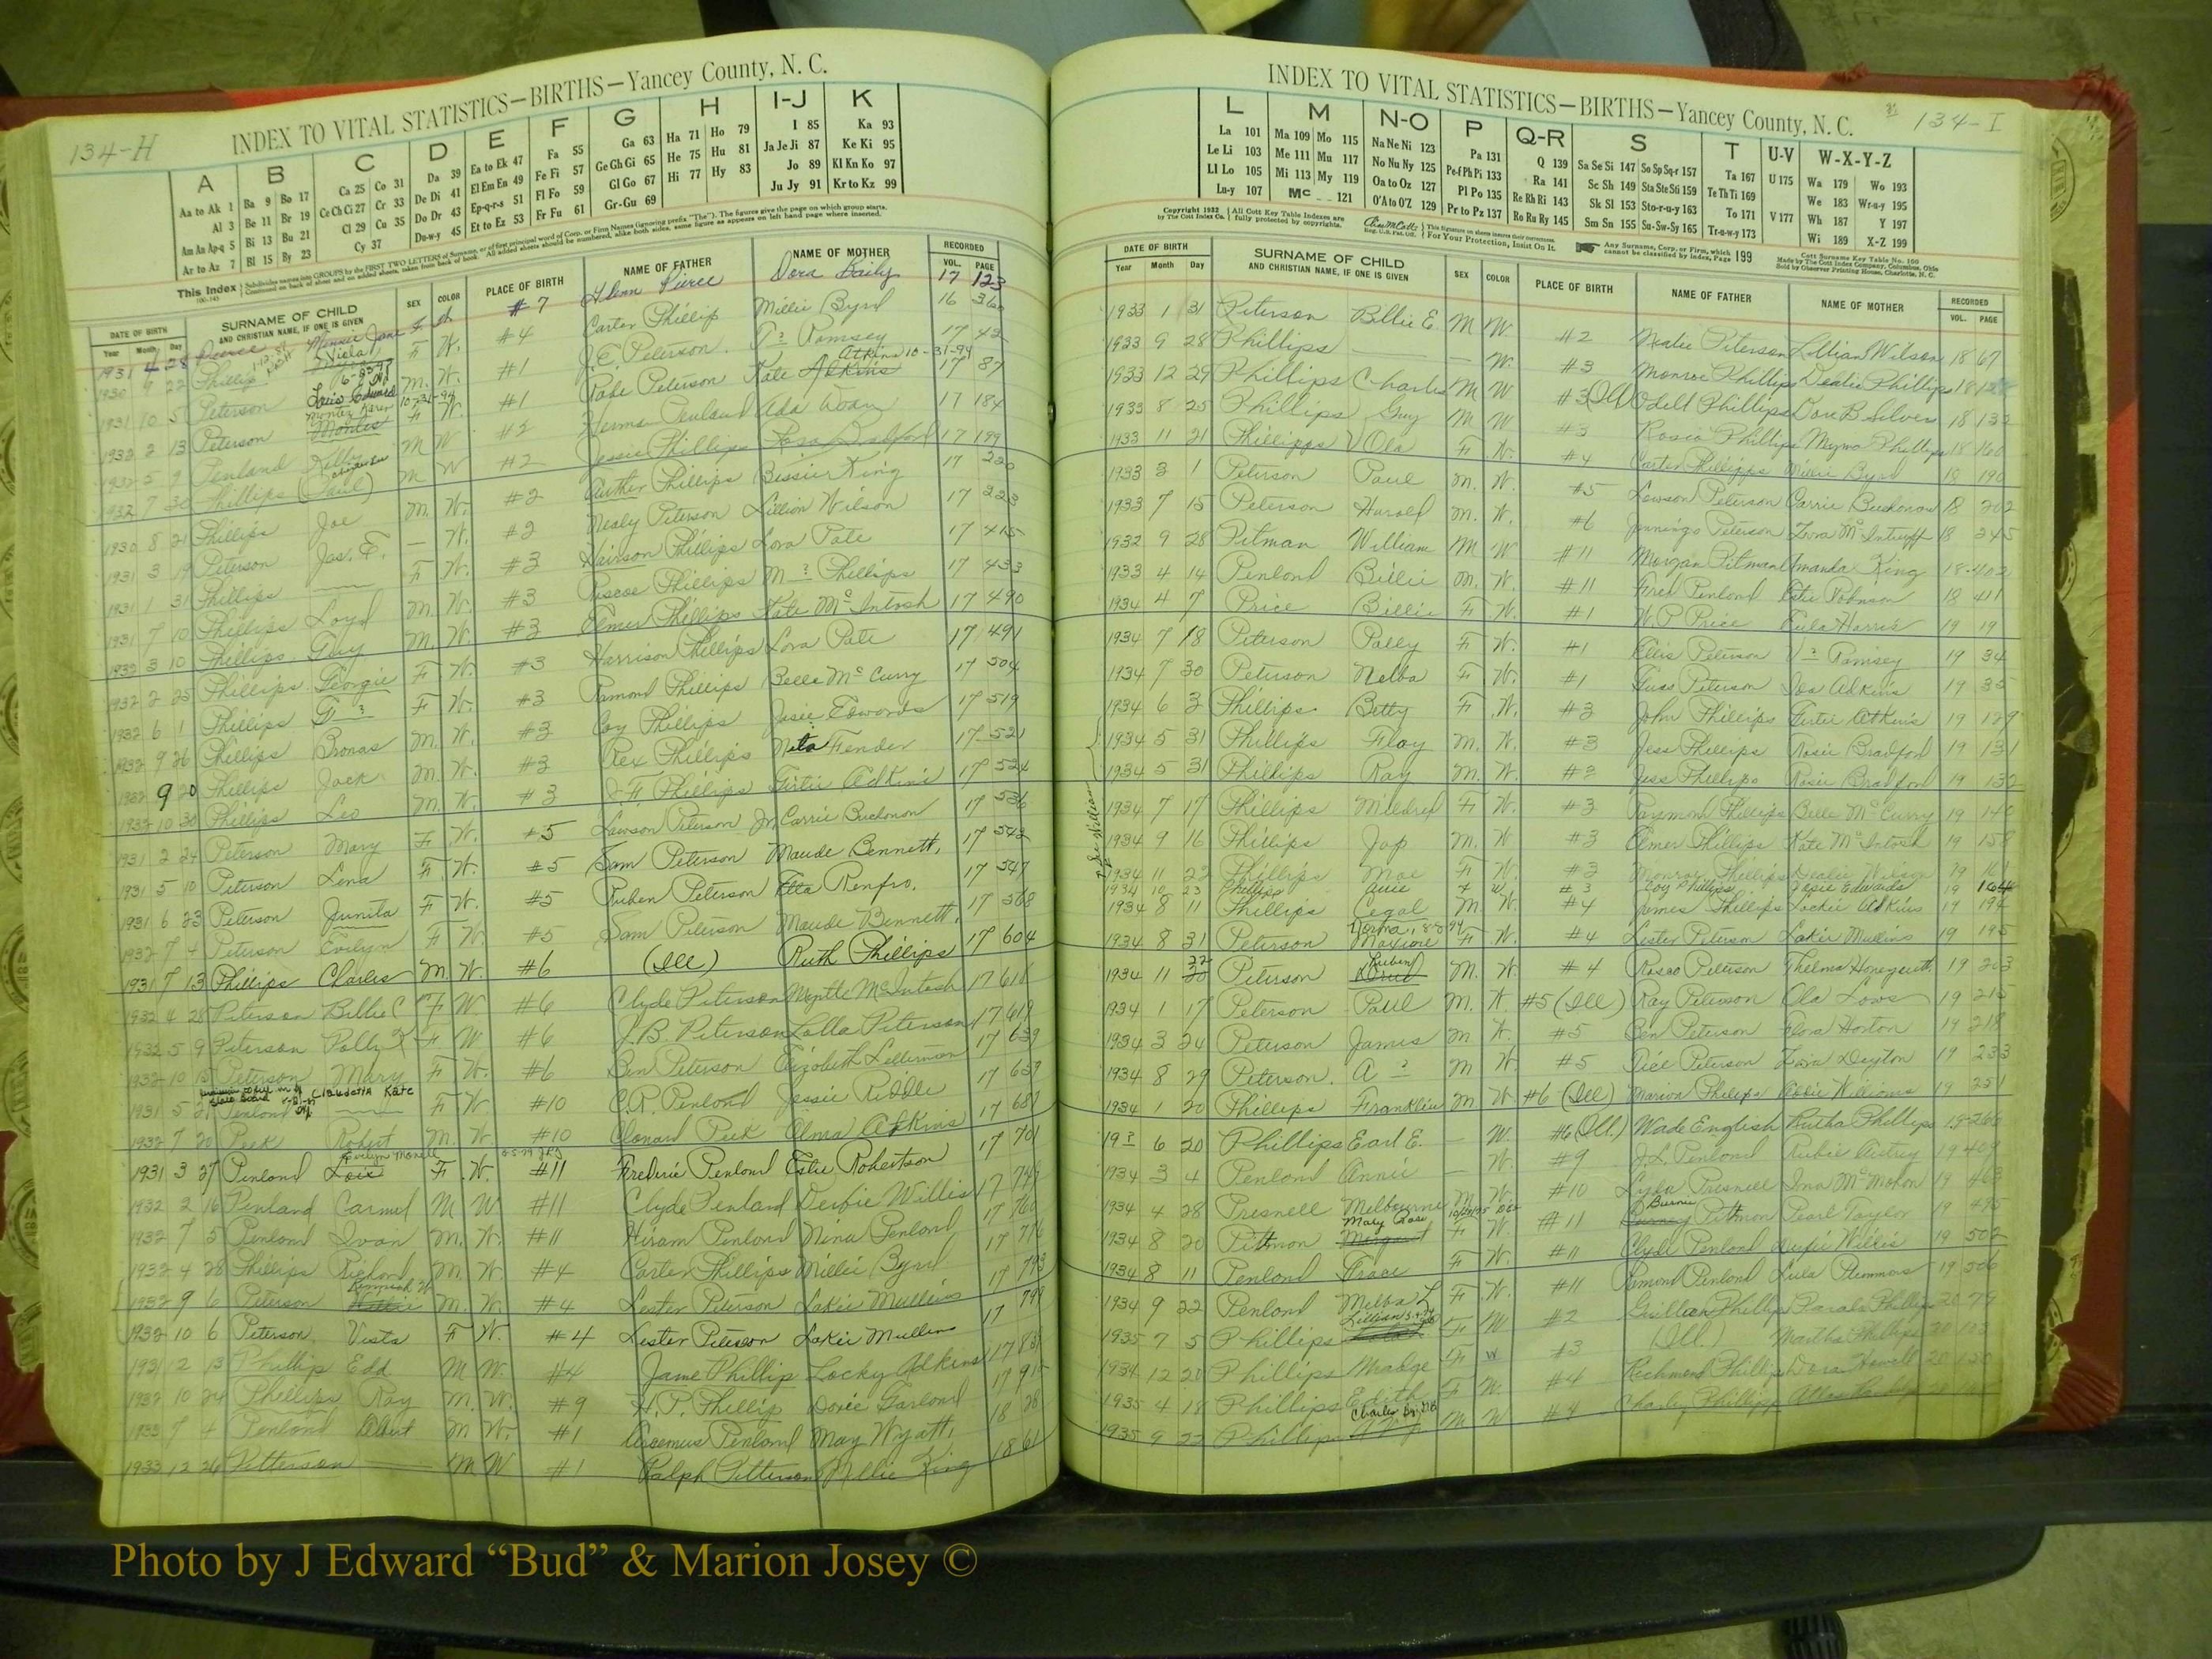 134-H
INDEX TO VITAL STATISTICS—BIRTHS—Yancey County, N. C.
A B C D E F G H I-J K
Aa to Ak 1 Ba 9 Bo 17 Ca 25 Co 31 Da 39 Ea to Ek 47 Fa 55 Ga 63 Ha 71 Ho 79 I 85 Ka 93
Al 3 Be 11 Br 19 Ce Ch Ci 27 Cr 33 De Di 41 El Em En 49 Fe Fi 57 Ge Gh Gi 65 He 75 Hu 81 Ja Je Ji 87 Ke Ki 95
Am An Ap-q 5 Bi 13 Bu 21 Cl 29 Cu 35 Do Dr 43 Ep-q-r-s 51 Fl Fo 59 Gl Go 67 Hi 77 Hy 83 Jo 89 Kl Kn Ko 97
Ar to Az 7 Bl 15 By 23 Cy 37 Du-w-y 45 Et to Ez 53 Fr Fu 61 Gr-Gu 69 Ju Jy 91 Kr to Kz 99
This Index
DATE OF BIRTH SURNAME OF CHILD SEX COLOR PLACE OF BIRTH NAME OF FATHER NAME OF MOTHER RECORDED
Year Month Day AND CHRISTIAN NAME, IF ONE IS GIVEN VOL. PAGE
1931 4 28 Pierce Minnie Jane F #7 Glenn Pierce Dora Baily 17 123
1930 9 22 Phillip Viola F W. #4 Carter Phillip Millie Byrd 16 360
1931 10 5 Peterson Louis Edward M. W. #1 J.C. Peterson T? Ramsey 17 42
1932 2 13 Peterson Montez F W. #1 Pabe Peterson Kate Atkins 10-31-94 17 87
1932 5 9 Penland M W #2 Penland Ada 17 184
1932 7 30 Phillips (Paul) M W #2 Jessie Phillips Bradford 17 199
1930 8 21 Phillips Joe M. W. #2 Auther Phillips Bessie King 17 220
1931 3 19 Peterson Jas. E. — W. #2 Nealy Peterson Lillian Wilson 17 223
1931 1 31 Phillips — F W. #3 Harrison Phillips Lora Pate 17 415
1931 7 10 Phillips Loyd M. W. #3 Roscoe Phillips M ? Phillips 17 433
1932 3 10 Phillips Guy M. W. #3 Elmer Phillips Kate McIntosh 17 490
1932 2 25 Phillips Georgie F W. #3 Harrison Phillips Lora Pate 17 491
1932 6 1 Phillips G ? F W. #3 Ramond Phillips Belle McCurry 17 504
1932 9 26 Phillips Bronas M. W. #3 Coy Phillips Josie Edwards 17 519
1932 9 20 Phillips Jack M. W. #3 Rex Phillips Neta Fender 17 521
1932 10 30 Phillips Leo M. W. #3 J.F. Phillips Girtie Adkins 17 524
1931 2 24 Peterson Mary F W. #5 Lawson Peterson Jr. Carrie Buchanon 17 536
1931 5 10 Peterson Lena F. W. #5 Sam Peterson Maude Bennett, 17 543
1931 6 23 Peterson Junita F W. #5 Ruben Peterson Etta Renfro. 17 547
1932 7 4 Peterson Evelyn F W. #5 Sam Peterson Maude Bennett. 17 568
1931 7 13 Phillips Charles M. W. #6 (Ill) Ruth Phillips 17 604
1932 4 28 Peterson Billie C F W. #6 Clyde Peterson Myrtle McIntosh 17 616
1932 5 9 Peterson Polly K F W #6 J.B. Peterson Lolla Peterson 17 619
1932 10 15 Peterson Mary F W. #6 Ben Peterson Elizabeth 17 639
1931 5 21 Penland Claudetta Kate F W #10 C.R. Penland Jessie Riddle 17 659
1932 7 20 Peek Robert M. W. #10 Clonard Peek Alma Atkins 17 687
1931 3 27 Penland Lois Evelyn F. W. #11 Frederic Penland Estie Robertson 17 701
1932 2 16 Penland Carmel M W #11 Clyde Penland Derfie Willis 17 749
1932 7 5 Penland Ivan M. W. #11 Hiram Penland Nina Penland 17 760
1932 4 28 Phillips Richard M. W. #4 Carter Phillips Millie Byrd 17 776
1932 9 6 Peterson M. W. #4 Lester Peterson Lakie Mullins 17 793
1932 10 6 Peterson Vista F W. #4 Lester Peterson Lakie Mullins 17 799
1931 2 13 Phillip Edd M W. #4 Jame Phillip Locky Adkins 17 831
1932 10 24 Phillips Ray M. W. #9 H.P. Phillip Dovie Garland 17 915
1933 7 4 Penland M W. #1 Penland May Wyatt, 18 28
1933 12 26 Petterson — M W #1 Ralph Petterson Ollie King 18 61
134-I
INDEX TO VITAL STATISTICS—BIRTHS—Yancey County, N. C.
L M N-O P Q-R S T U-V W-X-Y-Z
La 101 Ma 109 Mo 115 Na Ne Ni 123 Pa 131 Q 139 Sa Se Si 147 So Sp Sq-r 157 Ta 167 U 175 Wa 179 Wo 193
Le Li 103 Me 111 Mu 117 No Nu Ny 125 Pe-f Ph Pi 133 Ra 141 Sc Sh 149 Sta Ste Sti 159 Te Th Ti 169 We 183 Wr-u-y 195
Ll Lo 105 Mi 113 My 119 Oa to Oz 127 Pl Po 135 Re Rh Ri 143 Sk Sl 153 Sto-r-u-y 163 To 171 V 177 Wh 187 Y 197
Lu-y 107 Mc 121 O'A to O'Z 129 Pr to Pz 137 Ro Ru Ry 145 Sm Sn 155 Su-Sw-Sy 165 Tr-u-w-y 173 Wi 189 X-Z 199
Copyright 1932 by The Cott Index Co. All Cott Key Table Indexes are fully protected by copyrights. For Your Protection, Insist On It. Any Surname, Corp. or Firm, which cannot be classified by Index, Page 199 Cott Surname Key Table No. 100 Made by The Cott Index Company, Columbus, Ohio Sold by Observer Printing House, Charlotte, N. C.
DATE OF BIRTH SURNAME OF CHILD SEX COLOR PLACE OF BIRTH NAME OF FATHER NAME OF MOTHER RECORDED
Year Month Day AND CHRISTIAN NAME, IF ONE IS GIVEN VOL. PAGE
1933 1 31 Peterson Billie E. M W #2 Nealie Peterson Lillian Wilson 18 67
1933 9 28 Phillips — — W. #3 Monroe Phillips Dealie Phillips 18
1933 12 29 Phillips Charles M W #3 (Ill) Odell Phillips Dora B Silvers 18 132
1933 8 25 Phillips Guy M W #3 Rosco Phillips Phillips 18 160
1933 11 21 Phillipps V Ola F W. #4 Carter Phillipps Millie Byrd 18 190
1933 3 1 Peterson Paul M. W. #5 Lawson Peterson Carrie Buchanan 18 202
1933 7 15 Peterson Harold M. W. #6 Jennings Peterson Zora McInturff 18 345
1932 9 28 Pitman William M W #11 Morgan Pitman Amanda King 18-402
1933 4 14 Penlond Billie M. W. #11 Fred Penlond Estie Robinson 18 411
1934 4 7 Price Billie F W. #1 W.P. Price Eula Harris 19 19
1934 7 18 Peterson Polly F W. #1 Ellis Peterson V ? Ramsey 19 34
1934 7 30 Peterson Nelba F W. #1 Guss Peterson Iva Adkins 19 35
1934 6 3 Phillips Betty F W. #3 John Phillips Girtie Atkins 19 129
1934 5 31 Phillips Floy M. W. #3 Jess Phillips Rosie Bradford 19 131
1934 5 31 Phillips Ray M. W. #3 Jess Phillips Rosie Bradford 19 132
1934 7 17 Phillips Mildred F W. #3 Raymond Phillips Belle McCurry 19 146
1934 9 16 Phillips Jap M. W #3 Elmer Phillips Kate McIntosh 19 158
1934 11 22 Phillips Mae F W. #3 Monroe Phillips Dealie Wilson 19 161
1934 10 23 Phillips F W #3 Coy Phillips Josie Edwards 19 164
1934 8 11 Phillips Cegal M W. #4 James Phillips Lockie Adkins 19 194
1934 8 31 Peterson Norma Maxine F W. #4 Lester Peterson Lakie Mullins 19 195
1934 11 22 Peterson Ruben M. W. #4 Rosco Peterson Thelma Honeycutt 19 203
1934 1 17 Peterson Paul M. W. #5 (Ill) Ray Peterson Ola Laws 19 215
1934 3 24 Peterson James M W. #5 Ben Peterson Flora Horton 19 218
1934 8 29 Peterson. A ? M W. #5 Rice Peterson Zora Dayton 19 233
1934 1 20 Phillips Franklin M W #6 (Ill) Marion Phillips Addie Williams 19 251
19? 6 20 Phillips Earl E. — W. #6 (Ill.) Wade English Rutha Phillips 19 266
1934 3 4 Penland Annie — W. #9 J.L. Penland Rubie Autrey 19 409
1934 4 28 Presnell Melbourne M. W. #10 Lyda Presnell Ina McMahon 19 463
1934 8 20 Pittmon Mary Rose F W #11 Burnie Pittmon Pearl Taylor 19 495
1934 8 11 Penland Grace F W. #11 Clyde Penland Willis 19 502
1934 9 22 Penland Melba L F W. #11 Remond Penland Lula Plemmons 19 506
1935 7 5 Phillips Lillian F W #2 Phillips Phillips 20 79
1934 12 20 Phillips Madge F W #3 (Ill.) Martha Phillips 20
1935 4 18 Phillips Edith F W. #4 Richmond Phillips Dora Howell 20
1935 9 22 Phillips Charles M W #4 Charley Phillips
Photo by J Edward “Bud” & Marion Josey ©